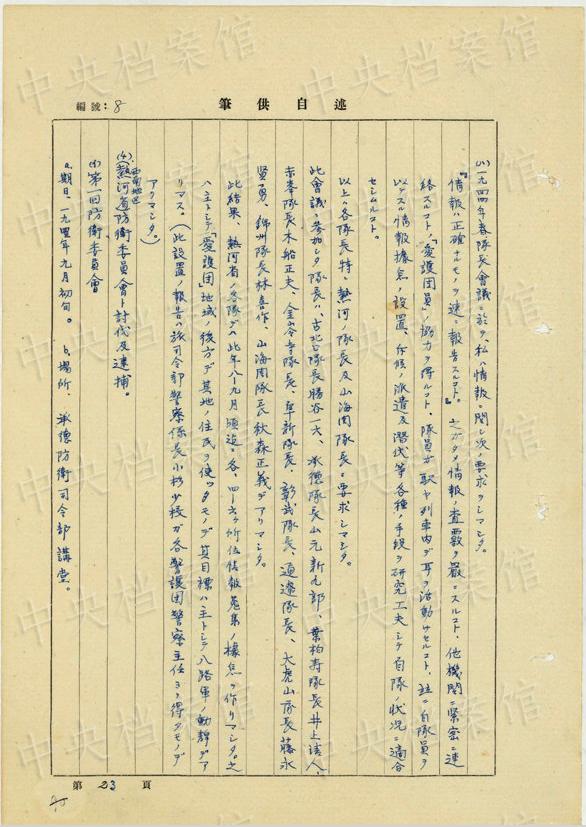 述自供筆
編號：8
(ハ)一九四四年春隊長会議ニ於テ、私ハ情報ニ関シ次ノ要求ヲシマシタ。
『情報ハ正確ナルモノヲ速ニ報告スルコト。』之ガタメ情報ノ査覈ヲ厳ニスルコト、他機関ニ緊密ニ連
絡スルコト、「愛護団員」ノ協力ヲ得ルコト、隊員ガ駅ヤ列車内デ耳ヲ活動サセルコト、並ニ自隊員ヲ
以テスル情報據点ノ設置、斥候ノ派遣及潜伏等各種ノ手段ヲ研究工夫シテ自隊ノ状況ニ適合
セシムルコト。
以上ハ各隊長特ニ熱河ノ隊長及山海関隊長ニ要求シマシタ。
此會議ニ参加シタ隊長ハ、古北口隊長勝谷一夫、承德隊長山元新九郎、葉柏寿隊長井上清人、
赤峯隊長木船正夫、金嶺寺隊長、阜新隊長、彰武隊長、通遼隊長、大虎山隊長藤永
賢勇、錦州隊長林喜作、山海関隊長秋森正義デアリマシタ。
此結果、熱河省ノ各隊デハ此年八-九月頃迄ニ各、四-六ヶ所位情報蒐集ノ據点ヲ作リマシタ。之
ハ主トシテ「愛護団地域」ノ後方デ其地ノ住民ヲ使ッタモノデ其目標ハ主トシテ八路軍ノ動静デア
リマス。(此設置ノ報告ハ旅司令部警察係長小杉少校ガ各警護団警察主任ヨリ得タモノデ
アリマシタ。)
(4)、西南地区(熱河)道防衛委員會ト討伐及逮捕。
(イ)第一回防衛委員會
a、期日、一九四四年九月初旬。 b、場所、承德防衛司令部講堂。
第 23 頁
中央档案馆